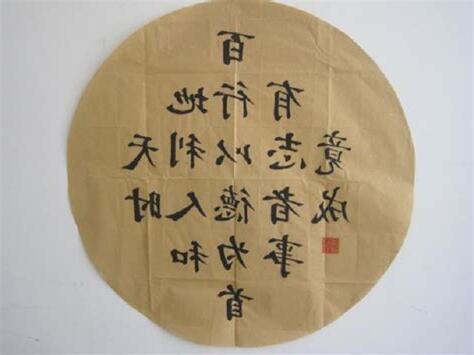 天时
地利人和
百行以德为首
有志者事
竟成